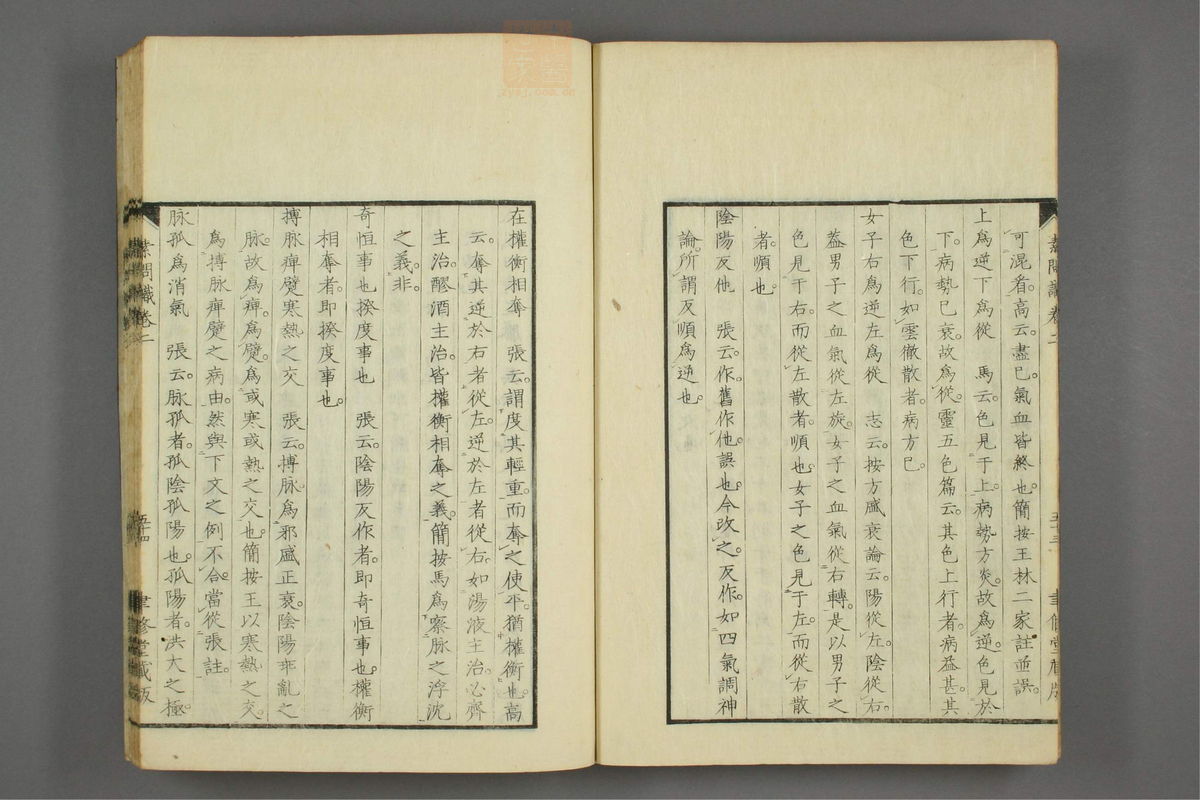 素問識卷二 五十三 聿修堂藏版
可混者。高云。盡已。氣血皆終也。簡按王林二家註並誤。
上爲逆下爲從 馬云。色見于上。病勢方炎。故爲逆。色見於
下。病勢已衰。故爲從。靈五色篇云。其色上行者。病益甚。其
色下行。如雲徹散者。病方已。
女子右爲逆左爲從 志云。按方盛衰論云。陽從左。陰從右。
蓋男子之血氣從左旋。女子之血氣從右轉。是以男子之
色見于右。而從左散者。順也。女子之色見于左。而從右散
者。順也。
陰陽反他 張云。作。舊作他。誤也。今改之。反作。如四氣調神
論。所謂反順爲逆也。
在權衡相奪 張云。謂度其輕重。而奪之使平。猶權衡也。高
云。奪其逆於右者從左。逆於左者從右。如湯液主治。必齊
主治。醪酒主治。皆權衡相奪之義。簡按馬爲察脉之浮沈
之義。非。
奇恒事也揆度事也 張云。陰陽反作者。即奇恒事也。權衡
相奪者。即揆度事也。
搏脉痺躄寒熱之交 張云。搏脉。爲邪盛正衰。陰陽乖亂之
脉。故爲痺。爲躄。爲或寒或熱之交也。簡按王以寒熱之交。
爲搏脉痺躄之病由。然與下文之例不合。當從張註。
脉孤爲消氣 張云。脉孤者。孤陰孤陽也。孤陽者。洪大之極。
素問識卷二 五十四 聿修堂藏版